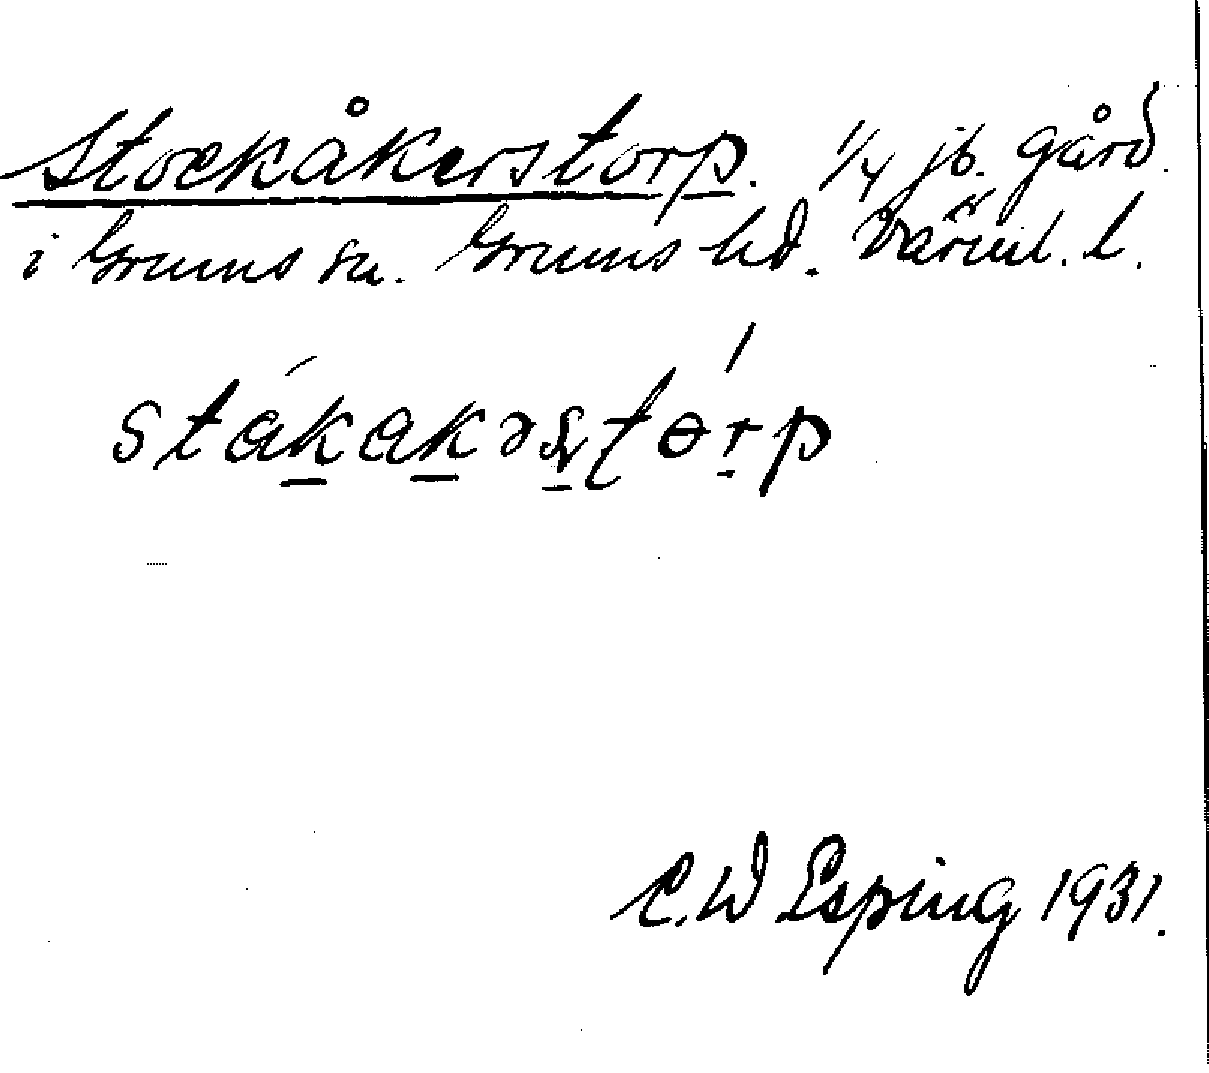 Stockåkerstorp. 1/4 jb. gård.
i Grums sn. Grums hd. Värml. l.
C. W Esping 1931.